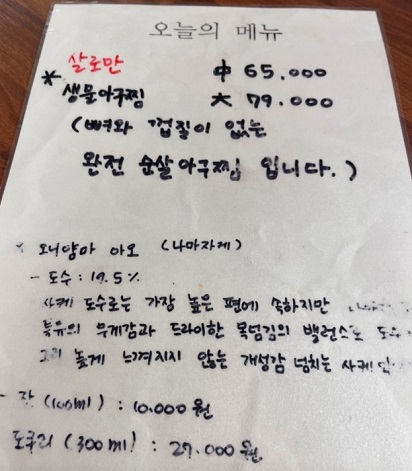 오늘의 메뉴
살로만 中 65.000
* 생물아구찜 大 79.000
(뼈와 껍질이 없는
완전 순살아구찜 입니다.)
* 오니양마 아오 (나마자케)
- 도수 : 19.5%
사케 도수로는 가장 높은 편에 속하지만
특유의 무게감과 드라이한 목넘김의 밸런스로
높게 느껴지지 않는 개성감 넘치는 사케
- 잔 (100ml) : 10.000원
도쿠리 (300ml) : 27.000원